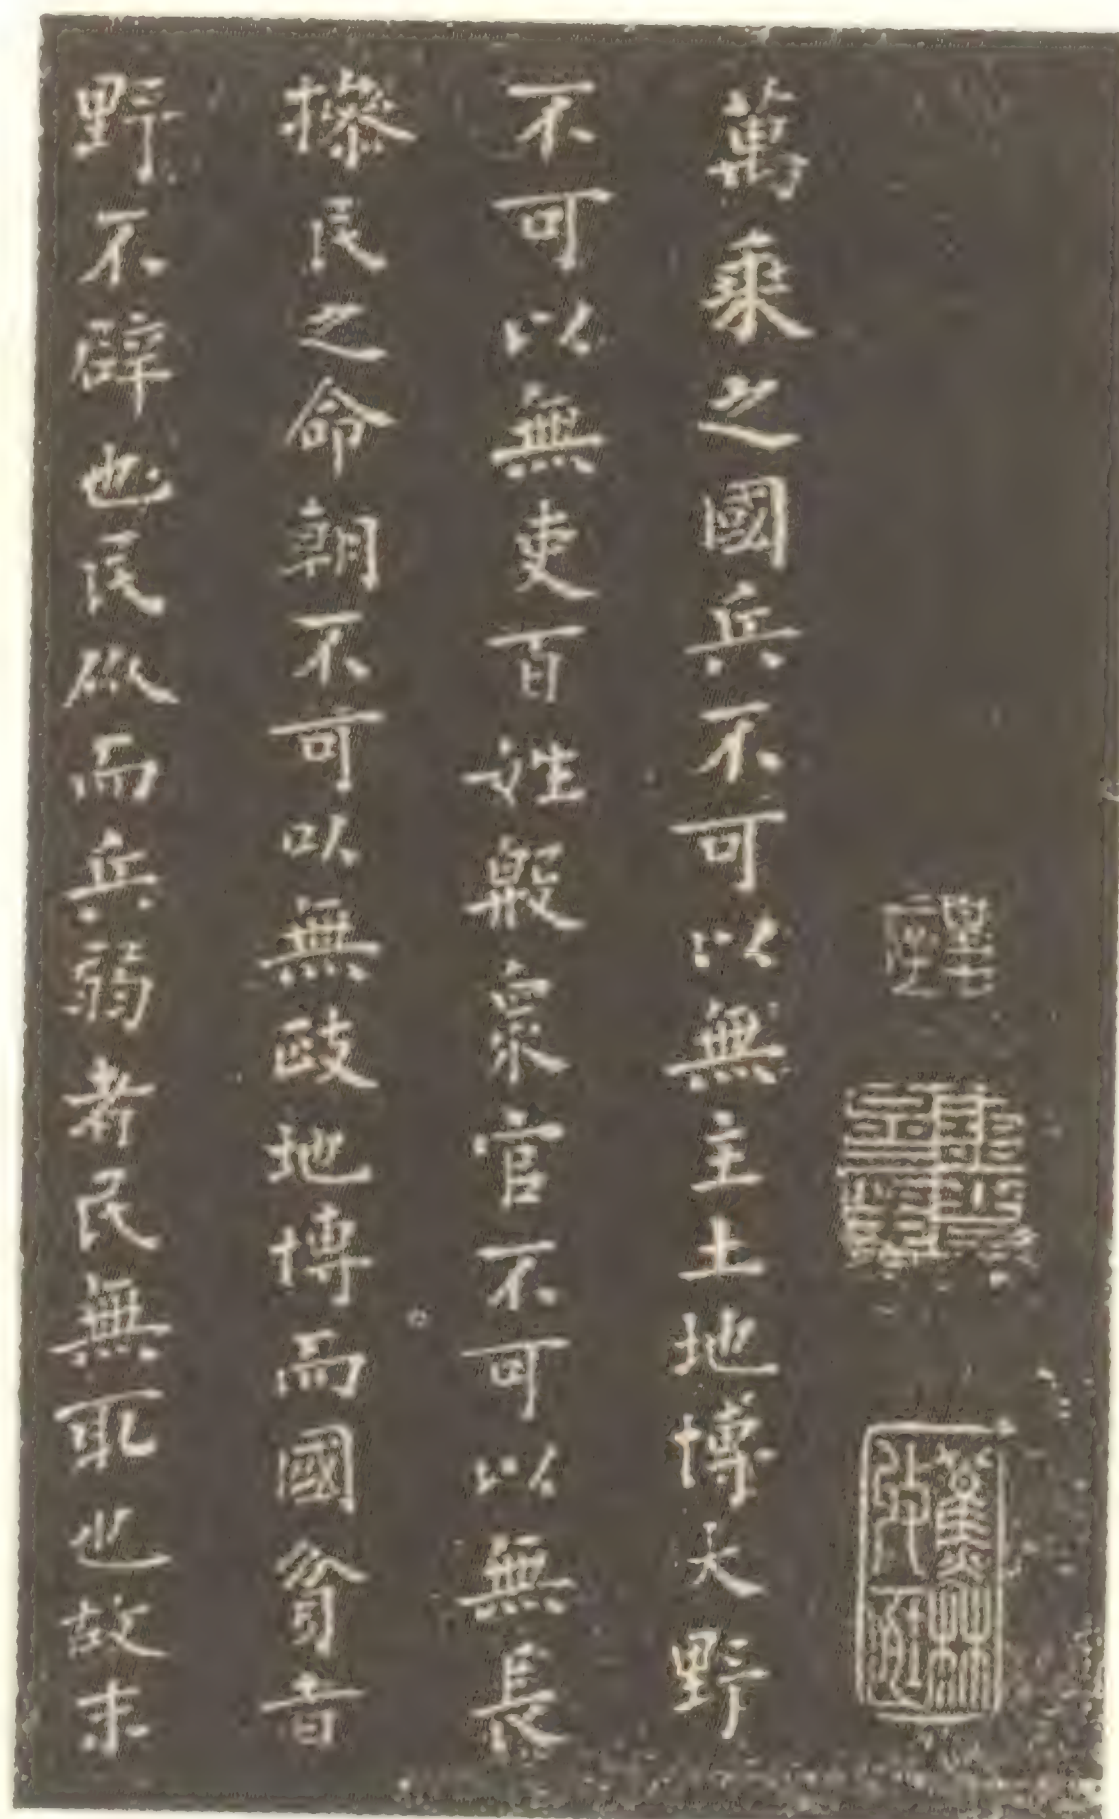 萬乘之國兵不可以無主土地博大野
不可以無吏百姓殷衆官不可以無長
操民之命朝不可以無政地博而國貧者
野不辟也民從而兵弱者民無取也故末